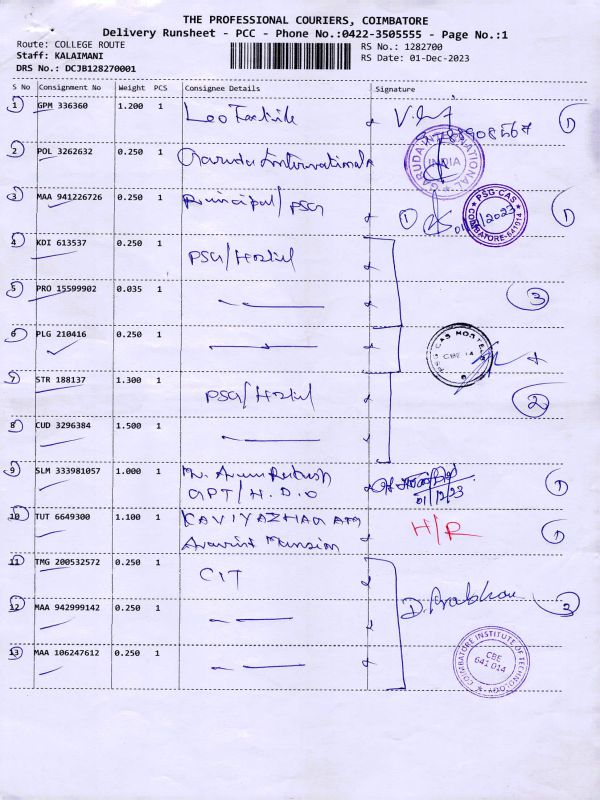 THE PROFESSIONAL COURIERS, COIMBATORE
Delivery Runsheet - PCC - Phone No.:0422-3505555 - Page No.:1
Route: COLLEGE ROUTE RS No.: 1282700
Staff: KALAIMANI RS Date: 01-Dec-2023
DRS No.: DCJB128270001
S No Consignment No Weight PCS Consignee Details Signature
1 GPM 336360 1.200 1 Leo Textile 1
2 POL 3262632 0.250 1 Garuda International
GARUDA INTERNATIONAL INDIA
3 MAA 941226726 0.250 1 Principal/PSG 1 1
PSG CAS COIMBATORE-641014
4 KDI 613537 0.250 1 PSG/Hostel
5 PRO 15599902 0.035 1 3
6 PLG 210416 0.250 1
PSG CAS HOSTEL CBE 14
7 STR 188137 1.300 1 PSG/Hostel 2
8 CUD 3296384 1.500 1
9 SLM 333981057 1.000 1 Mr. Arun 1
GPT/H.D.O 01/12/23
10 TUT 6649300 1.100 1 KAVIYAZHAGAN H/R 1
Aravint Mansion
11 TMG 200532572 0.250 1 CIT
12 MAA 942999142 0.250 1 D. Prabhu
13 MAA 106247612 0.250 1
COIMBATORE INSTITUTE OF TECHNOLOGY CBE 641 014